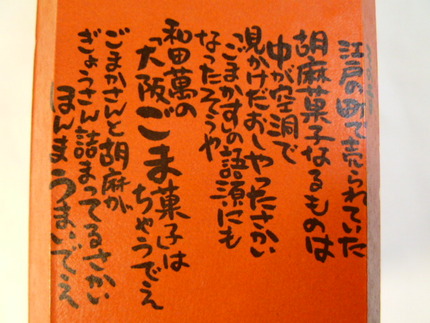 江戸の町で売られていた
胡麻菓子なるものは
中が空洞で
見かけだおしやったさかい
ごまかすの語源にも
なったそうや
和田萬の
「大阪ごま菓子」は
ちゃうでえ
ごまかさんと胡麻が
ぎょうさん詰まってるさかい
ほんまうまいでえ